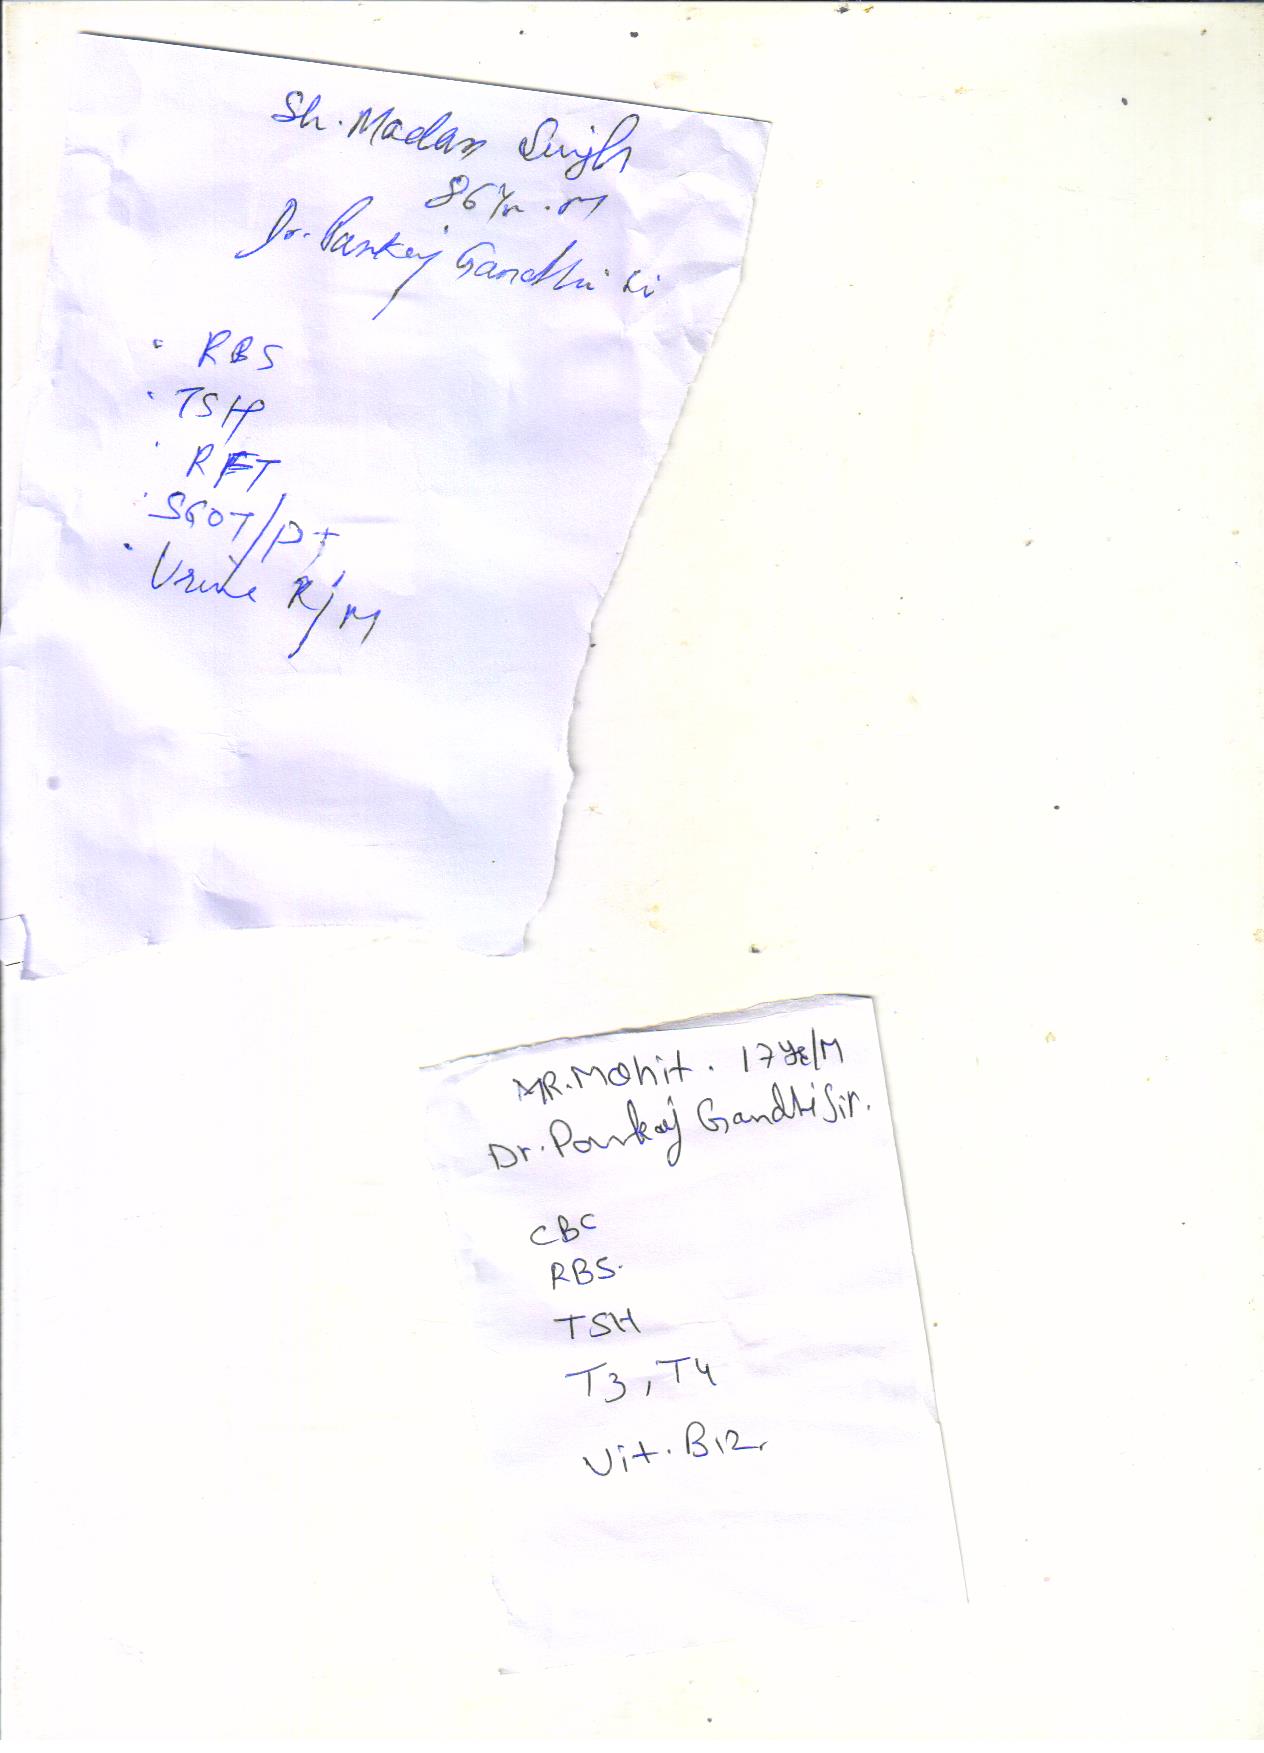 Sh. Madan Singh
86 Yr. M
Dr. Pankaj Gandhi
• RBS
• TSH
• RFT
• SGOT/PT
• Urine R/M
MR. Mohit. 17 YR/M
Dr. Pankaj Gandhi Sir.
CBC
RBS.
TSH
T3, T4
Vit. B12.